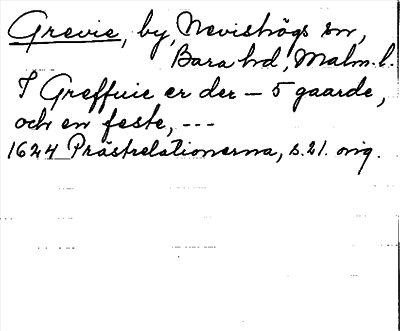 Grevie, by, Nevishögs sn,
Bara hd, Malm. l.
I Greffuie er der – 5 gaarde,
och en feste, ---
1624 Prästrelationerna, s. 21. orig.